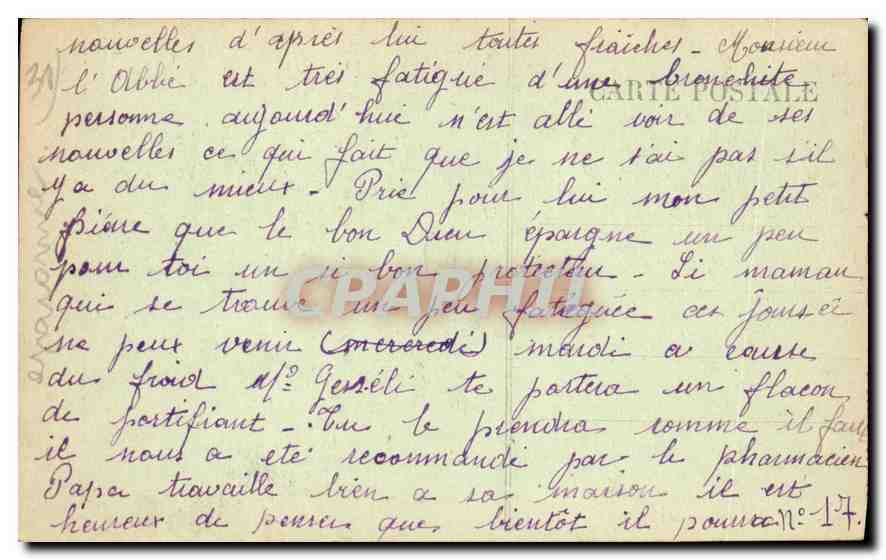 nouvelles d'après lui toutes fraîches - Monsieur
l'Abbé est très fatigué d'une bronchite
CARTE POSTALE
personne aujourd'hui n'est allé voir de ses
nouvelles ce qui fait que je ne sai pas s'il
y a du mieux - Prie pour lui mon petit
frère que le bon Dieu épargne un peu
pour toi un si bon protecteur - Si maman
qui se trouve un peu fatiguée ces jours ci
ne peux venir (mercredi) mardi a cause
du froid Mo Gesséli te portera un flacon
de fortifiant - Tu le prendra comme il faut
il nous a été recommandé par le pharmacien
Papa travaille bien a sa maison il est
heureux de penser que bientôt il pourra No 17.
31)
CPAPHIL